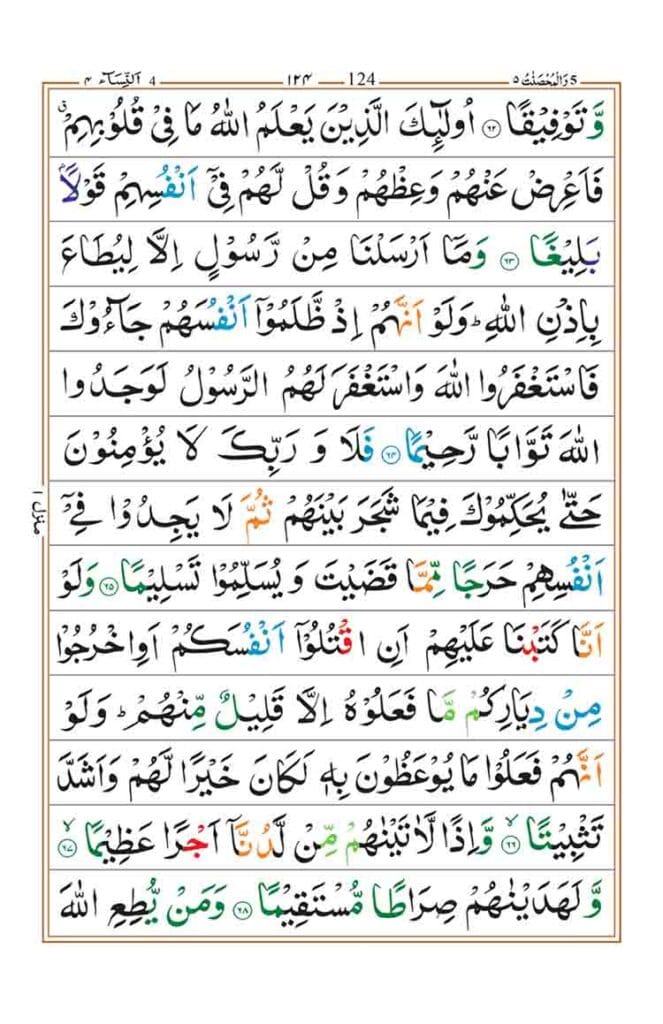 5 وَالْمُحْصَنٰتُ ٥ — 124 — ١٢٤ — 4 اَلنِّسَآء ٤
وَّتَوْفِيْقًا ﴿۶۲﴾ اُولٰٓئِكَ الَّذِيْنَ يَعْلَمُ اللّٰهُ مَا فِىْ قُلُوْبِهِمْ ۗ
فَاَعْرِضْ عَنْهُمْ وَعِظْهُمْ وَقُلْ لَّهُمْ فِىْۤ اَنْفُسِهِمْ قَوْلًاۢ
بَلِيْغًا ﴿۶۳﴾ وَمَاۤ اَرْسَلْنَا مِنْ رَّسُوْلٍ اِلَّا لِيُطَاعَ
بِاِذْنِ اللّٰهِ ؕ وَلَوْ اَنَّهُمْ اِذْ ظَّلَمُوْۤا اَنْفُسَهُمْ جَآءُوْكَ
فَاسْتَغْفَرُوا اللّٰهَ وَاسْتَغْفَرَ لَهُمُ الرَّسُوْلُ لَوَجَدُوا
اللّٰهَ تَوَّابًا رَّحِيْمًا ﴿۶۴﴾ فَلَا وَ رَبِّكَ لَا يُؤْمِنُوْنَ
حَتّٰى يُحَكِّمُوْكَ فِيْمَا شَجَرَ بَيْنَهُمْ ثُمَّ لَا يَجِدُوْا فِىْۤ
اَنْفُسِهِمْ حَرَجًا مِّمَّا قَضَيْتَ وَ يُسَلِّمُوْا تَسْلِيْمًا ﴿۶۵﴾ وَلَوْ
اَنَّا كَتَبْنَا عَلَيْهِمْ اَنِ اقْتُلُوْۤا اَنْفُسَكُمْ اَوِ اخْرُجُوْا
مِنْ دِيَارِكُمْ مَّا فَعَلُوْهُ اِلَّا قَلِيْلٌ مِّنْهُمْ ؕ وَلَوْ
اَنَّهُمْ فَعَلُوْا مَا يُوْعَظُوْنَ بِهٖ لَكَانَ خَيْرًا لَّهُمْ وَاَشَدَّ
تَثْبِيْتًا ۙ﴿۶۶﴾ وَّاِذًا لَّاٰتَيْنٰهُمْ مِّنْ لَّدُنَّاۤ اَجْرًا عَظِيْمًا ۙ﴿۶۷﴾
وَّلَهَدَيْنٰهُمْ صِرَاطًا مُّسْتَقِيْمًا ﴿۶۸﴾ وَمَنْ يُّطِعِ اللّٰهَ
منزل ١